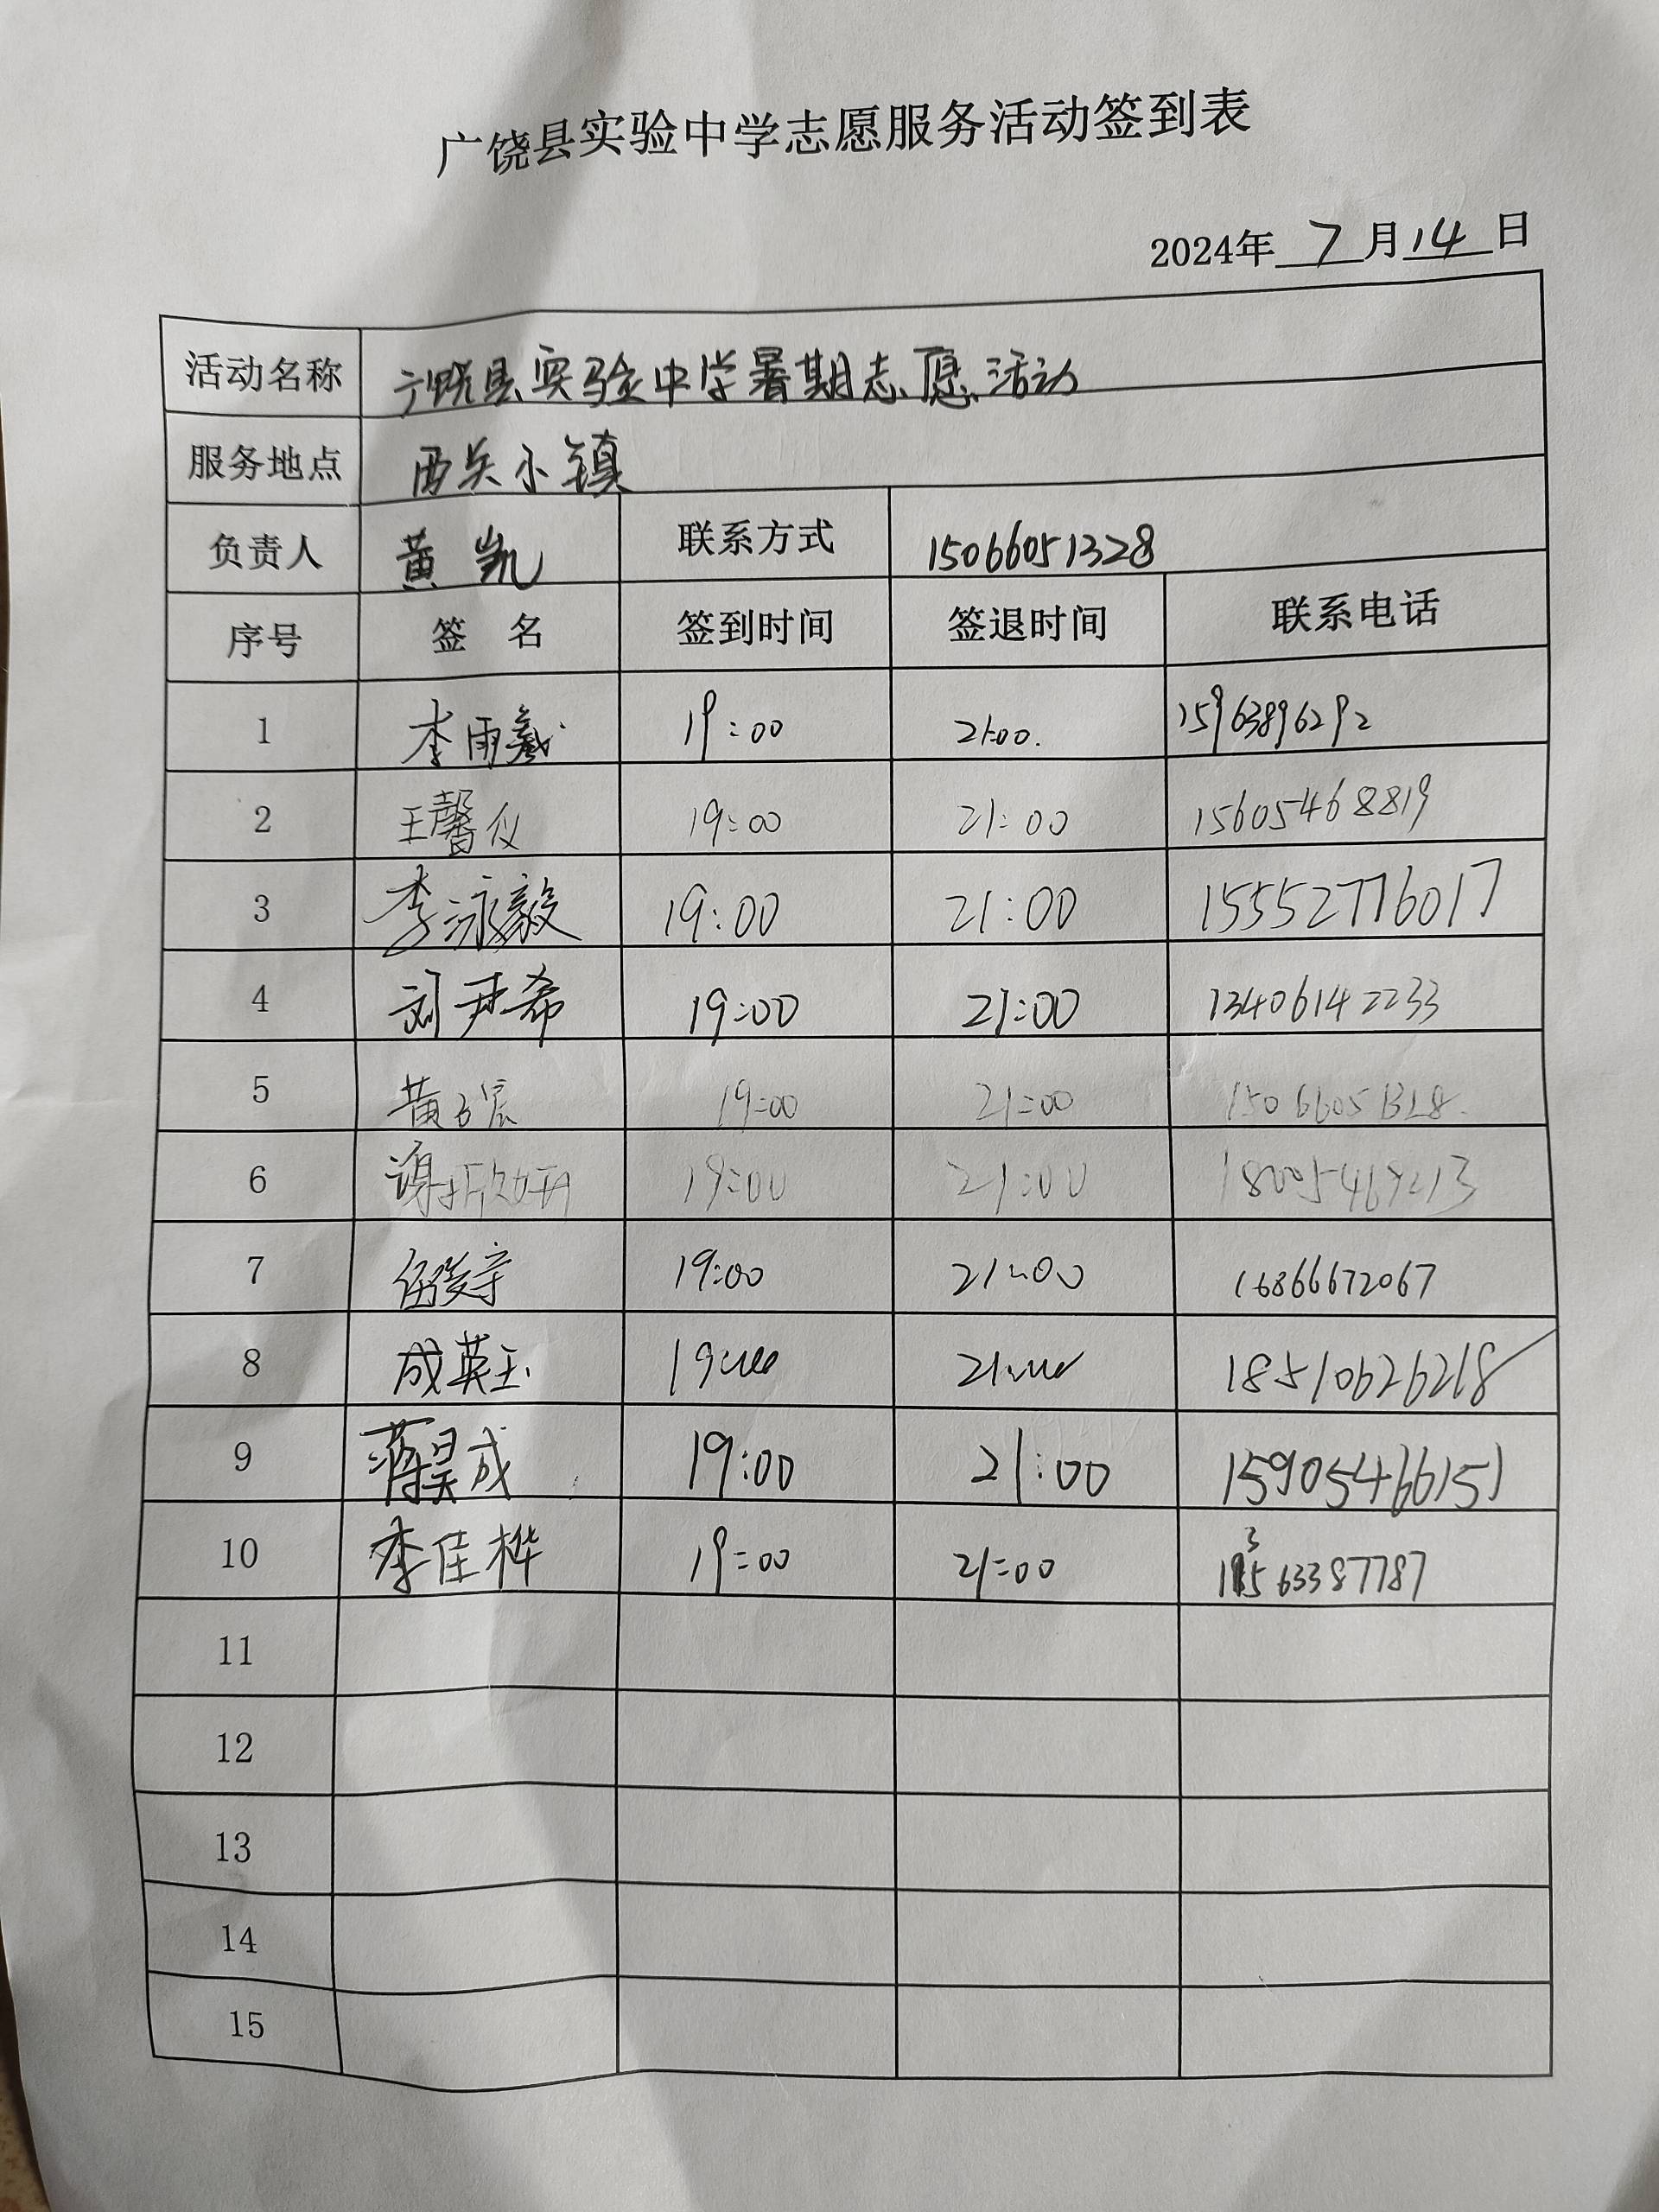 广饶县实验中学志愿服务活动签到表
2024年 7 月 14 日
活动名称 广饶县实验中学暑期志愿活动
服务地点 西关小镇
负责人 黄凯 联系方式 15066051328
序号 签 名 签到时间 签退时间 联系电话
1 李雨羲 19:00 21:00. 15963896292
2 王馨仪 19:00 21:00 15605468819
3 李泳毅 19:00 21:00 15552776017
4 刘尹希 19:00 21:00 13406142233
5 黄子宸 19:00 21:00 15066051328
6 19:00 21:00 18005469213
7 19:00 21:00 16866672067
8 成英玉 19:00 21:00 18510626218
9 蒋昊成 19:00 21:00 15905466151
10 李佳桦 19:00 21:00
11
12
13
14
15